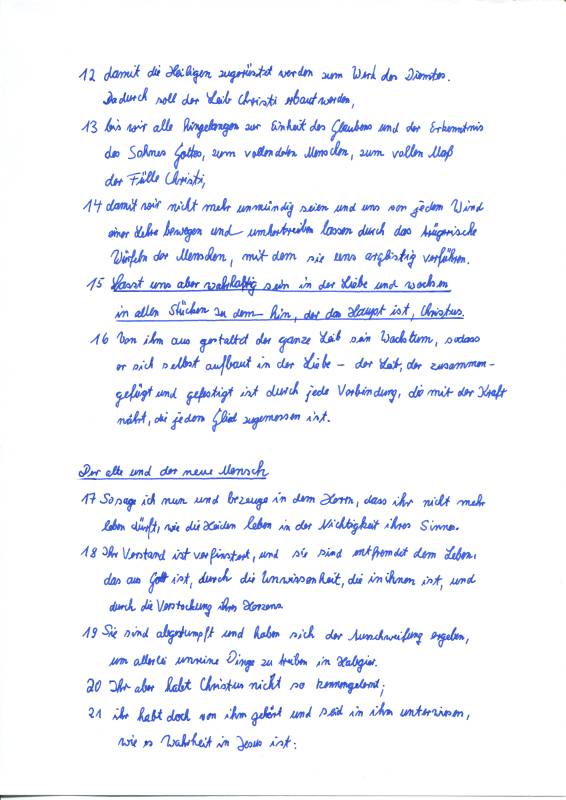 12 damit die Heiligen zugerüstet werden zum Werk des Dienstes.
Dadurch soll der Leib Christi erbaut werden,
13 bis wir alle hingelangen zur Einheit des Glaubens und der Erkenntnis
des Sohnes Gottes, zum vollendeten Menschen, zum vollen Maß
der Fülle Christi,
14 damit wir nicht mehr unmündig seien und uns von jedem Wind
einer Lehre bewegen und umhertreiben lassen durch das trügerische
Würfeln der Menschen, mit dem sie uns arglistig verführen.
15 Lasst uns aber wahrhaftig sein in der Liebe und wachsen
in allen Stücken zu dem hin, der das Haupt ist, Christus.
16 Von ihm aus gestaltet der ganze Leib sein Wachstum, sodass
er sich selbst aufbaut in der Liebe – der Leib, der zusammen-
gefügt und gefestigt ist durch jede Verbindung, die mit der Kraft
nährt, die jedem Glied zugemessen ist.
Der alte und der neue Mensch
17 So sage ich nun und bezeuge in dem Herrn, dass ihr nicht mehr
leben dürft, wie die Heiden leben in der Nichtigkeit ihres Sinnes.
18 Ihr Verstand ist verfinstert, und sie sind entfremdet dem Leben,
das aus Gott ist, durch die Unwissenheit, die in ihnen ist, und
durch die Verstockung ihres Herzens.
19 Sie sind abgestumpft und haben sich der Ausschweifung ergeben,
um allerlei unreine Dinge zu treiben in Habgier.
20 Ihr aber habt Christus nicht so kennengelernt;
21 ihr habt doch von ihm gehört und seid in ihm unterwiesen,
wie es Wahrheit in Jesus ist: